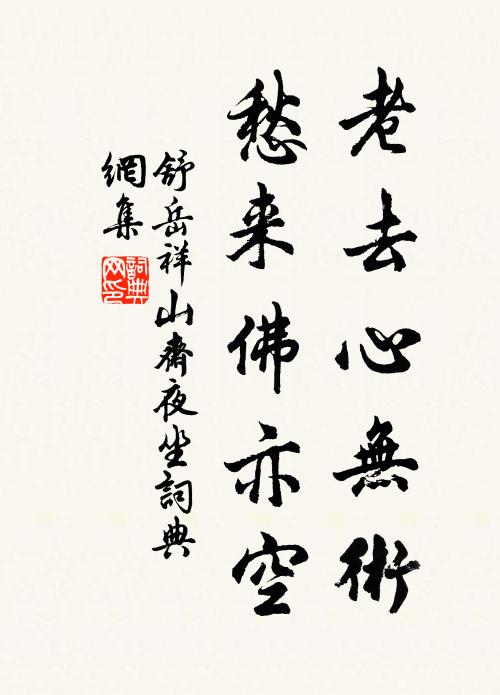 老去心無術
愁来佛亦空
舒岳祥山齋夜坐詞典
網集
詞典網印